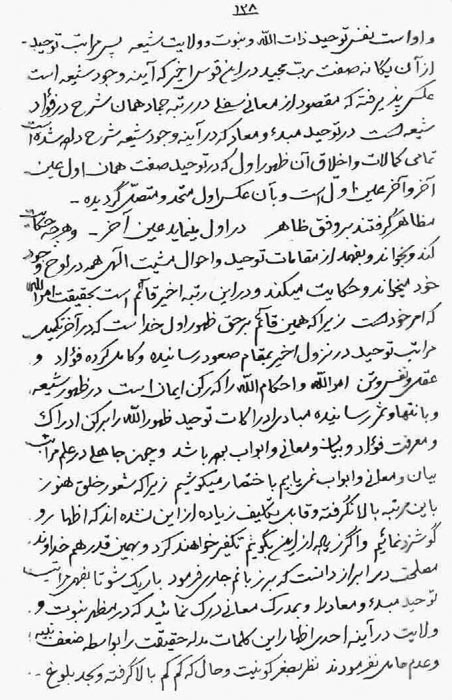 ١٣٨
و او است نفس توحید ذات الله و نبوت و ولایت شیعه پس مراتب توحید
از آن یگانه صفت رب مجید در این قوس اخیر که آینه وجود شیعه است
عکس پذیرفته که مقصود از معانی سفلی در رتبه جماد همان شرح در فؤاد
شیعه است در توحید مبدء و معاد که در آینه وجود شیعه شرح داده شده است
تمامی کمالات و اخلاق آن ظهور اول که در توحید صفت همان اول عین
آخر و آخر عین اول است و بآن عکس اول متحد و متصل گردیده
مظاهر گرفتند بر وفق ظاهر در اول بنماید عین آخر و هر چه حکایت
کند و بخواند و بفهمد از مقامات توحید و احوال مشیت الهی همه در لوح وجود
خود میخواند و حکایت میکند و در این رتبه اخیر قائم است بحقیقت امر الله
که امر خود است زیرا که همین قائم بر حق ظهور اول خداست که در آخر تکمیل
مراتب توحید در نزول اخیر بمقام صعود رسانیده و کامل کرده فؤاد و
عقل و نفس و تن امر الله و احکام الله را که رکن ایمان است در ظهور شیعه
و بانتها و ثمر رسانیده مبادی ادراکات توحید ظهور الله را بر کن ادراک
و معرفت فؤاد و بیان و معانی و ابواب بهر باشد و چون جاهلی در علم مراتب
بیان و معانی و ابواب نمی‌یابم با ختصار میکوشیم زیرا که شعور خلق هنوز
باین مرتبه بالا نگرفته و قابل تکلیف زیاده از این نشده اند که اظهار و
گوشزد نمائیم و اگر زیاده از این بگویم تکفر خواهند کرد و بهمین قدر هم خداوند
مصلحت در ابراز دانست که بر زبانم جاری فرمود باریک شو تا بفهمی مراتب
توحید مبدء و معاد را و مدرک معانی درک نمائید که در مظهر نبوت و
ولایت در آینه احدی اظهار این کلمات مدله حقیقت را بواسطه ضعف
و عدم حامل نفرمودند نظر بصغر کونیت و حال که کم کم بالا گرفته و بحد بلوغ